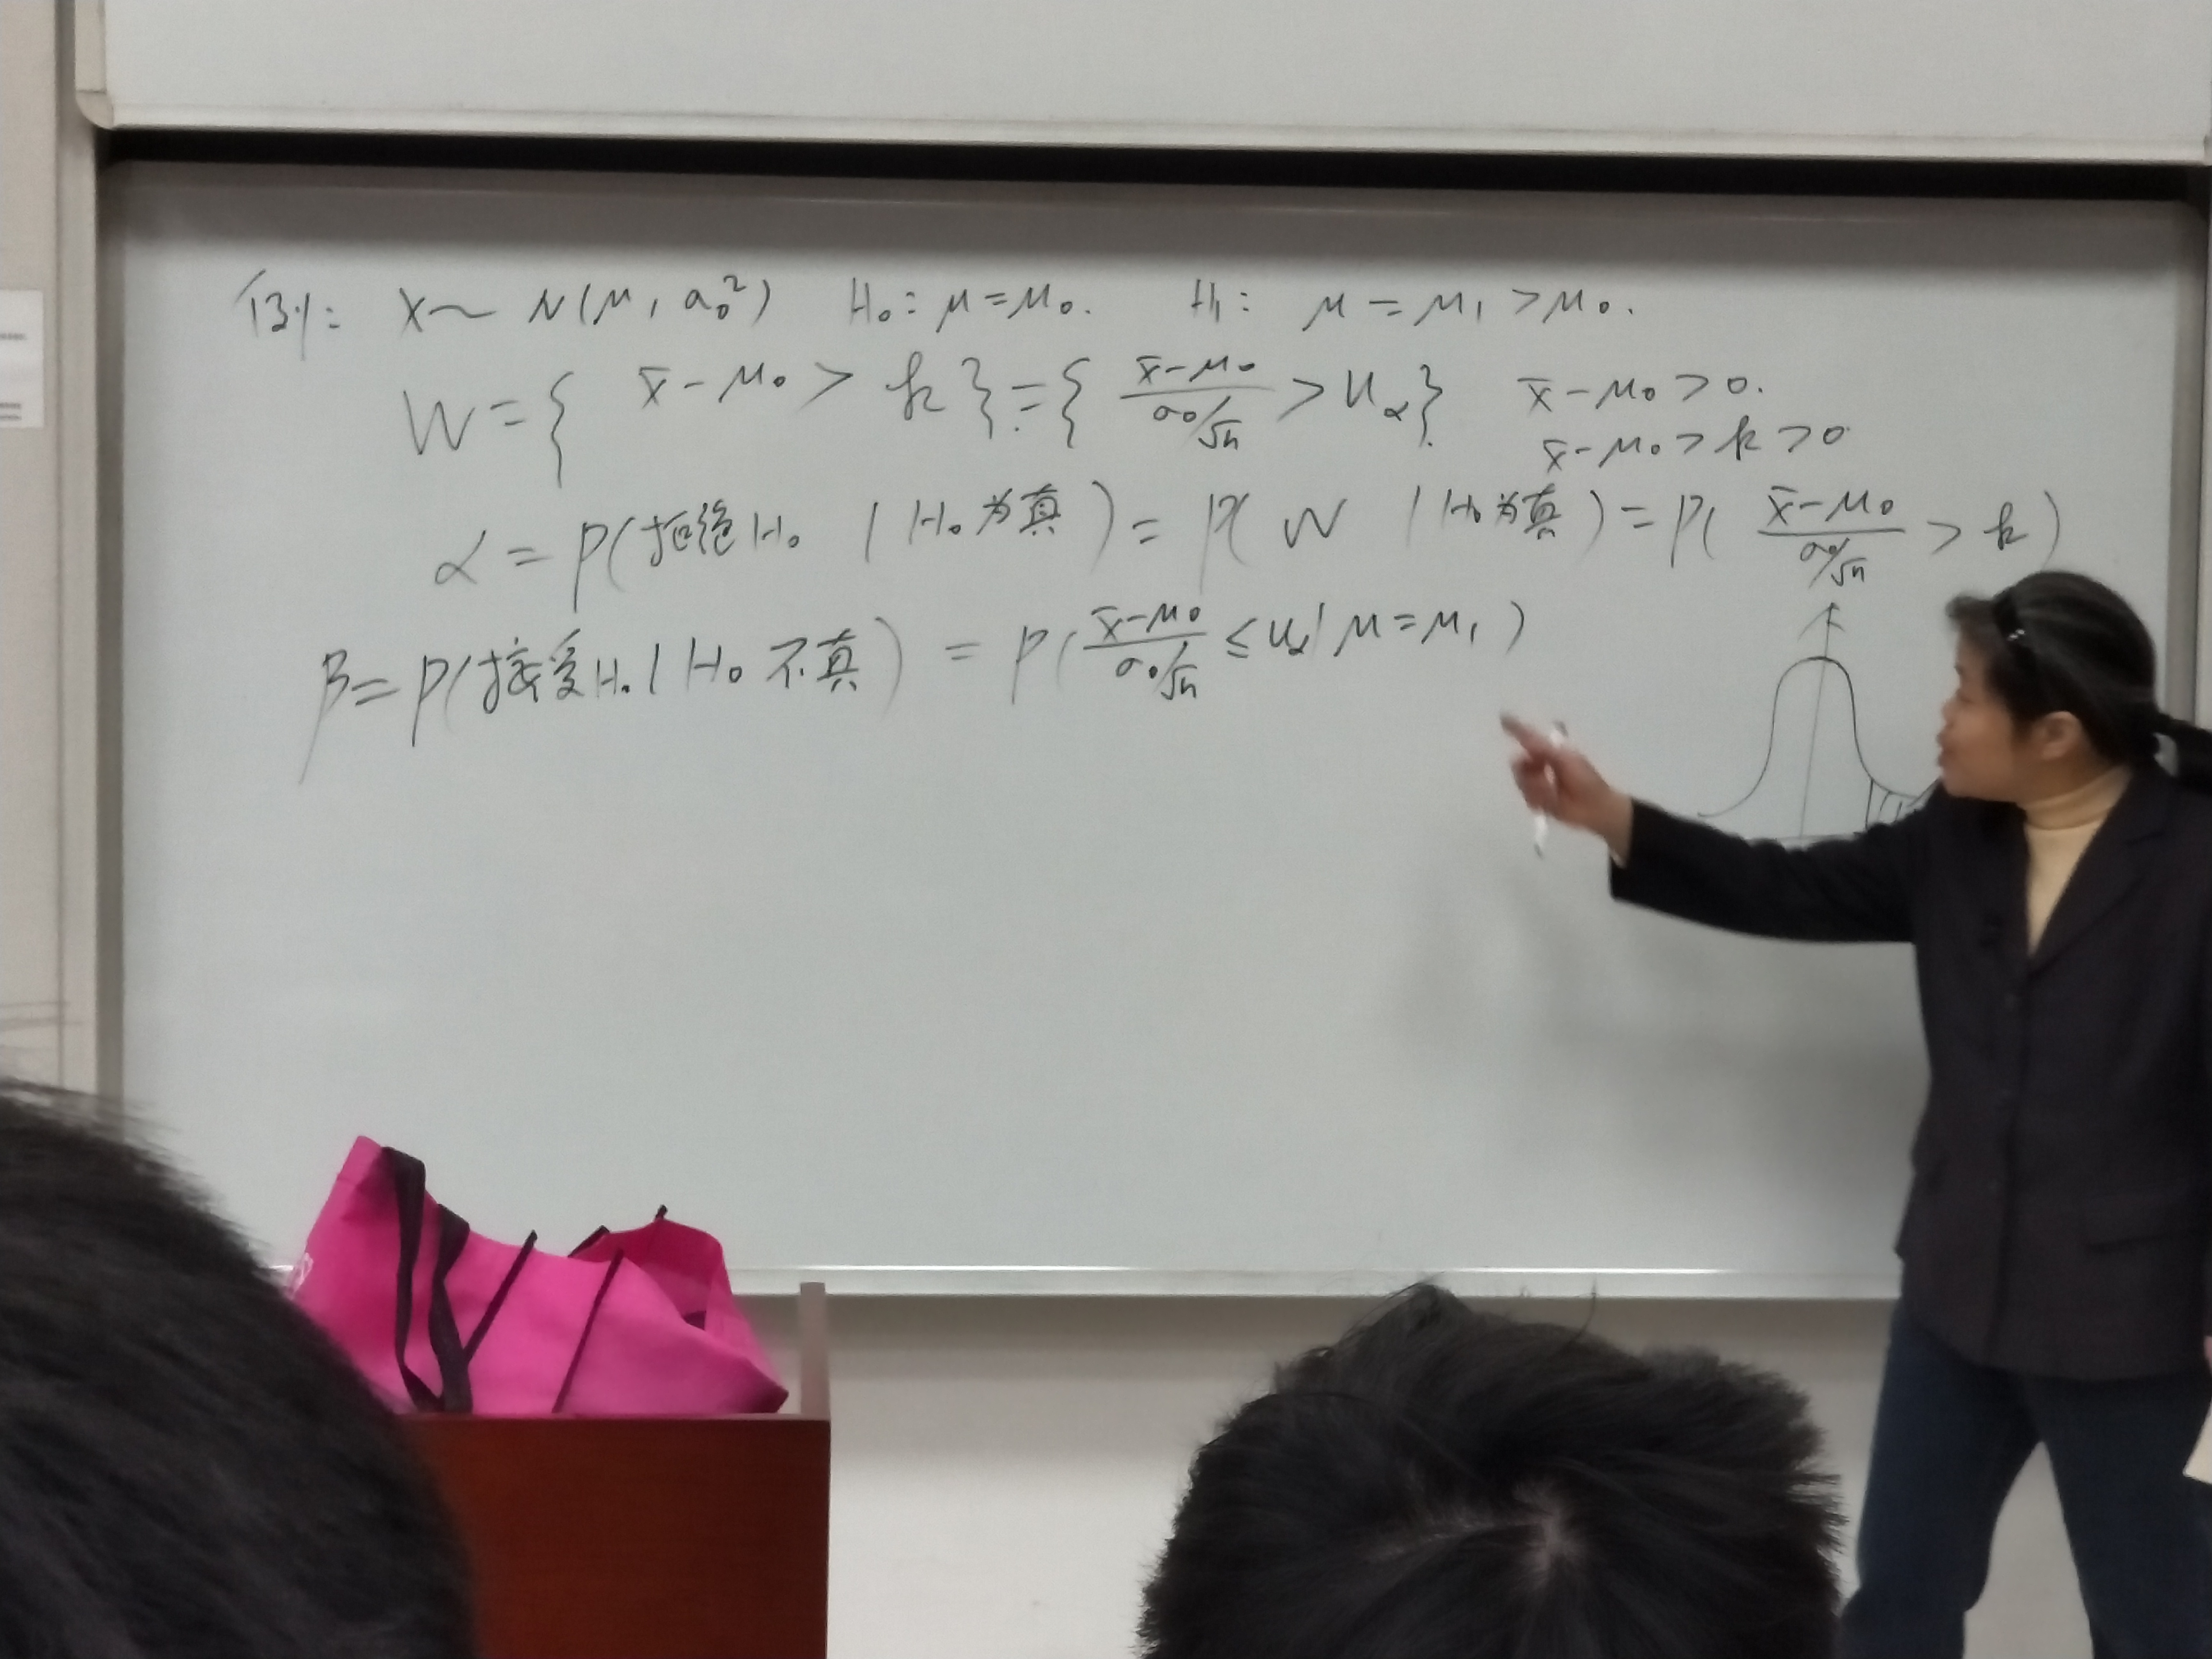 例: X ~ N(μ, σ₀²) H₀: μ = μ₀. H₁: μ = μ₁ > μ₀.
W = { x̄ - μ₀ > k } = { (x̄ - μ₀)/(σ₀/√n) > u_α }. x̄ - μ₀ > 0.
x̄ - μ₀ > k > 0
α = P(拒绝H₀ | H₀为真) = P(W | H₀为真) = P((x̄ - μ₀)/(σ₀/√n) > k)
β = P(接受H₀ | H₀不真) = P((x̄ - μ₀)/(σ₀/√n) ≤ u_α | μ = μ₁)